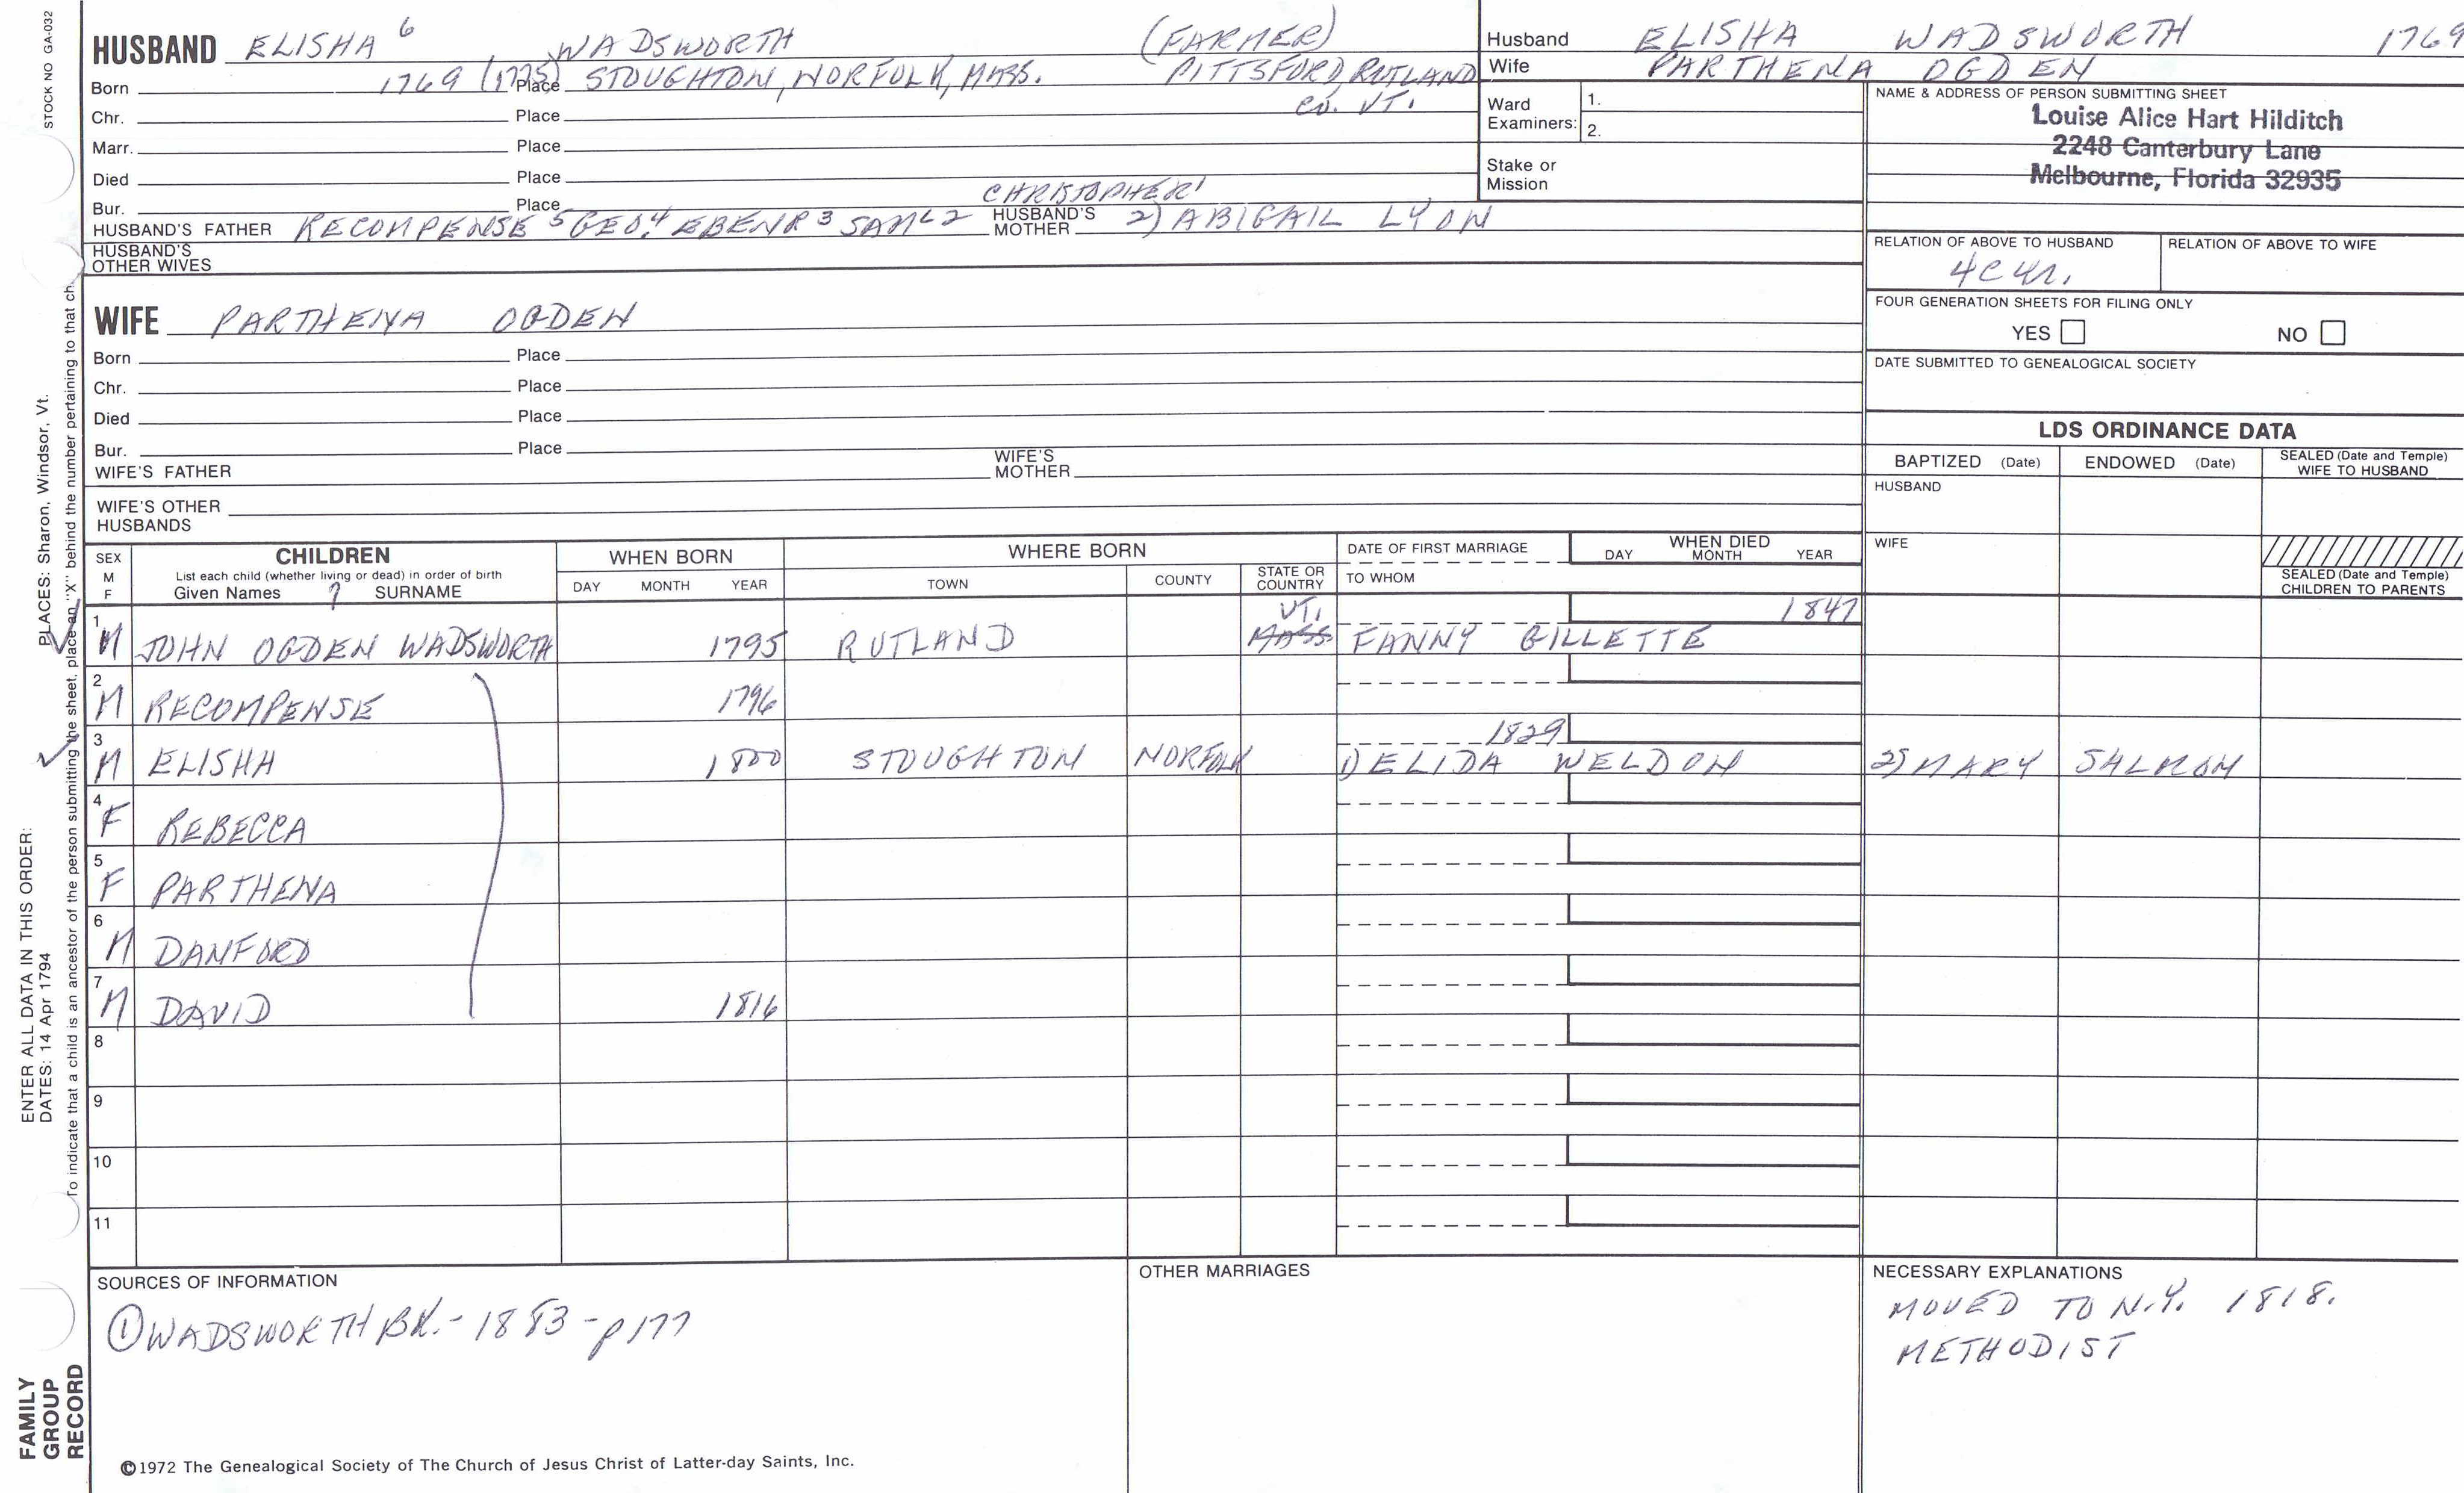 STOCK NO GA-032
HUSBAND ELISHA 6 WADSWORTH (FARMER)
Born 1769 (1775) Place STOUGHTON, NORFOLK, MASS. PITTSFORD, RUTLAND
CO. VT.
Chr. Place
Marr. Place
Died Place
Bur. Place
CHRISTOPHER 1
HUSBAND'S FATHER RECOMPENSE 5 GEO. 4 EBENR 3 SAML 2 HUSBAND'S MOTHER 2) ABIGAIL LYON
HUSBAND'S
OTHER WIVES
WIFE PARTHENA OGDEN
Born Place
Chr. Place
Died Place
Bur. Place
WIFE'S FATHER WIFE'S MOTHER
WIFE'S OTHER
HUSBANDS
Husband ELISHA WADSWORTH 1769
Wife PARTHENA OGDEN
Ward
Examiners:
1.
2.
Stake or
Mission
NAME & ADDRESS OF PERSON SUBMITTING SHEET
Louise Alice Hart Hilditch
2248 Canterbury Lane
Melbourne, Florida 32935
RELATION OF ABOVE TO HUSBAND RELATION OF ABOVE TO WIFE
FOUR GENERATION SHEETS FOR FILING ONLY
YES NO
DATE SUBMITTED TO GENEALOGICAL SOCIETY
LDS ORDINANCE DATA
BAPTIZED (Date) ENDOWED (Date) SEALED (Date and Temple)
WIFE TO HUSBAND
HUSBAND
WIFE
SEALED (Date and Temple)
CHILDREN TO PARENTS
SEX
M
F
CHILDREN
List each child (whether living or dead) in order of birth
Given Names ? SURNAME
WHEN BORN
DAY MONTH YEAR
WHERE BORN
TOWN COUNTY STATE OR
COUNTRY
DATE OF FIRST MARRIAGE
TO WHOM
WHEN DIED
DAY MONTH YEAR
VT. 1847
1 M JOHN OGDEN WADSWORTH 1795 RUTLAND MASS FANNY GILLETTE
2 M RECOMPENSE 1796
1829
3 M ELISHA 1800 STOUGHTON NORFOLK 1) ELIDA WELDON 2) MARY SALMON
4 F REBECCA
5 F PARTHENA
6 M DANFORD
7 M DAVID 1816
8
9
10
11
SOURCES OF INFORMATION
① WADSWORTH BK. - 1883 - p 177
OTHER MARRIAGES
NECESSARY EXPLANATIONS
MOVED TO N.Y. 1818.
METHODIST
©1972 The Genealogical Society of The Church of Jesus Christ of Latter-day Saints, Inc.
ENTER ALL DATA IN THIS ORDER:
DATES: 14 Apr 1794
PLACES: Sharon, Windsor, Vt.
To indicate that a child is an ancestor of the person submitting the sheet, place an "X" behind the number pertaining to that ch.
FAMILY
GROUP
RECORD